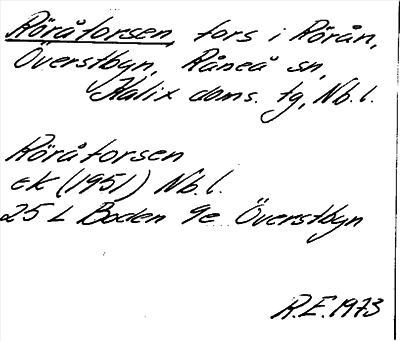 Röråforsen, fors i Rörån,
Överstbyn, Råneå sn,
Kalix doms. tg, Nb. l.
Röråforsen
ek (1951) Nb. l.
25 L Boden 9e Överstbyn
R.E. 1973